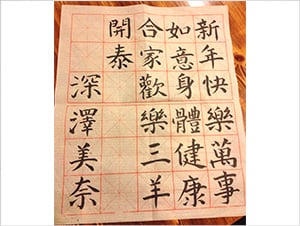 新年快樂萬事
如意身體健康
合家歡樂三羊
開泰
深澤美奈